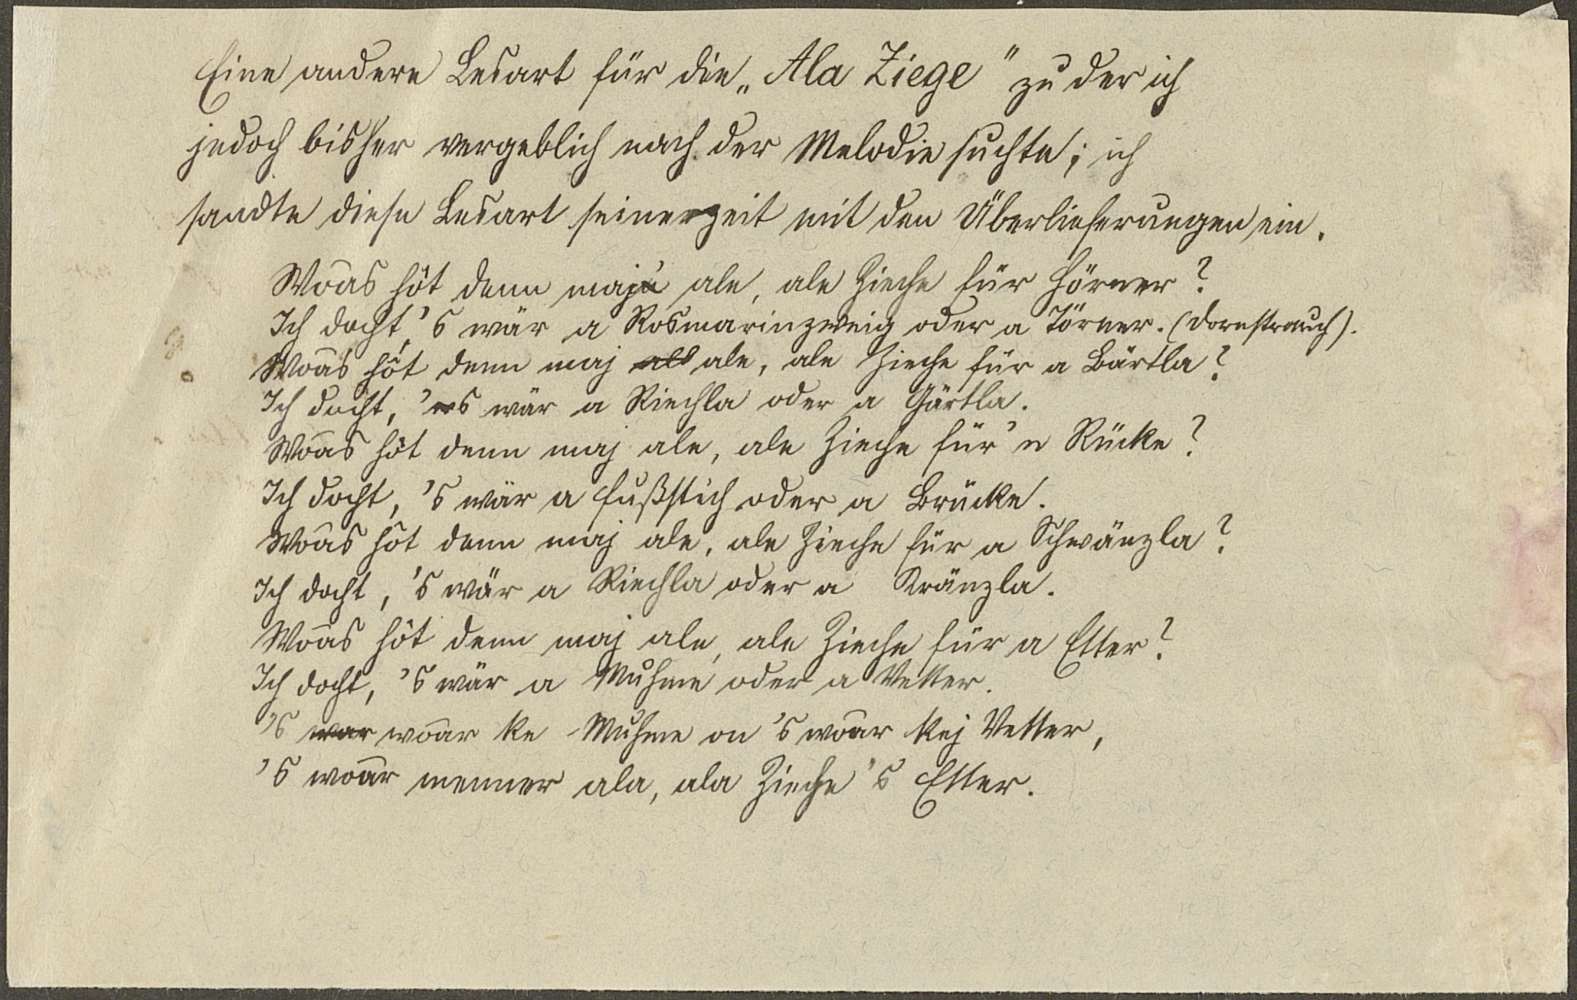 Eine andere Lesart für die „Ala Ziege" zu der ich
jedoch bisher vergeblich nach der Melodie suchte; ich
sandte diese Lesart seinerzeit mit den Überlieferungen ein.
Woas hôt denn maj ale, ale Zieche für Hörner?
Ich docht, 's wär a Rosmarinzweig oder a Törner. (Dornstrauch).
Woas hôt denn maj ale, ale Zieche für a Bärtla?
Ich docht, 's wär a Riechla oder a Gärtla.
Woas hôt denn maj ale, ale Zieche für'n Rücke?
Ich docht, 's wär a Fußstich oder a Brücke.
Woas hôt denn maj ale, ale Zieche für a Schwänzla?
Ich docht, 's wär a Riechla oder a Kränzla.
Woas hôt denn maj ale, ale Zieche für a Etter?
Ich docht, 's wär a Muhme oder a Vetter.
's woar ke Muhme on 's woar kej Vetter,
's woar menner ala, ala Zieche 's Etter.